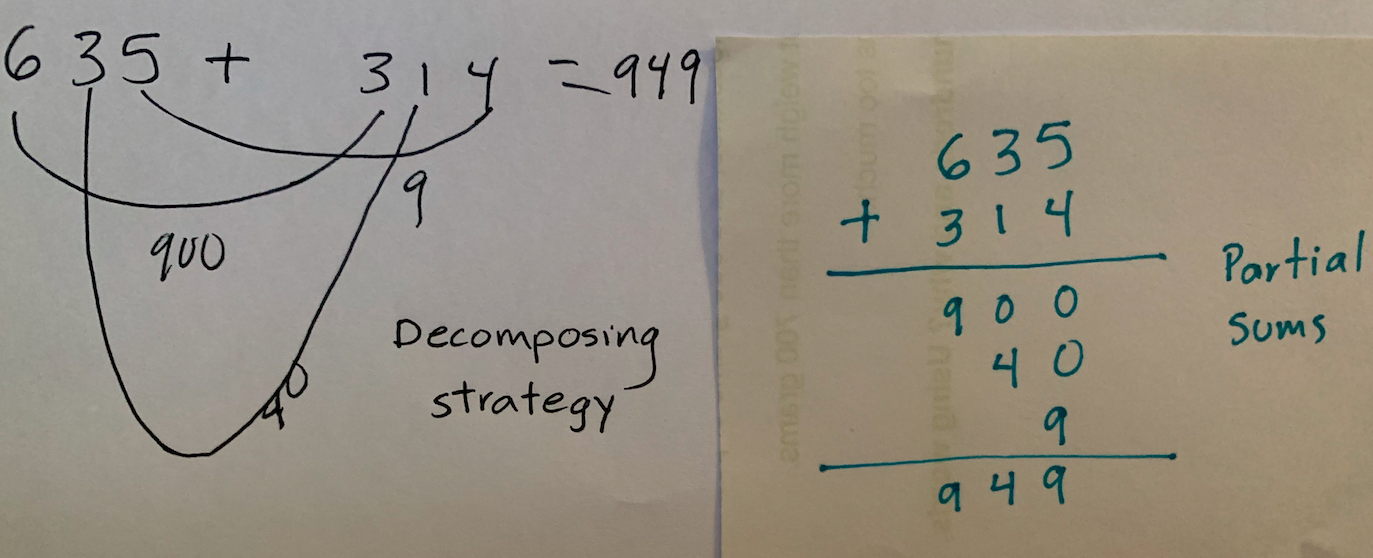 635 + 314 = 949
9
900
40
Decomposing
strategy
635
+ 314
900
40
9
949
Partial
sums